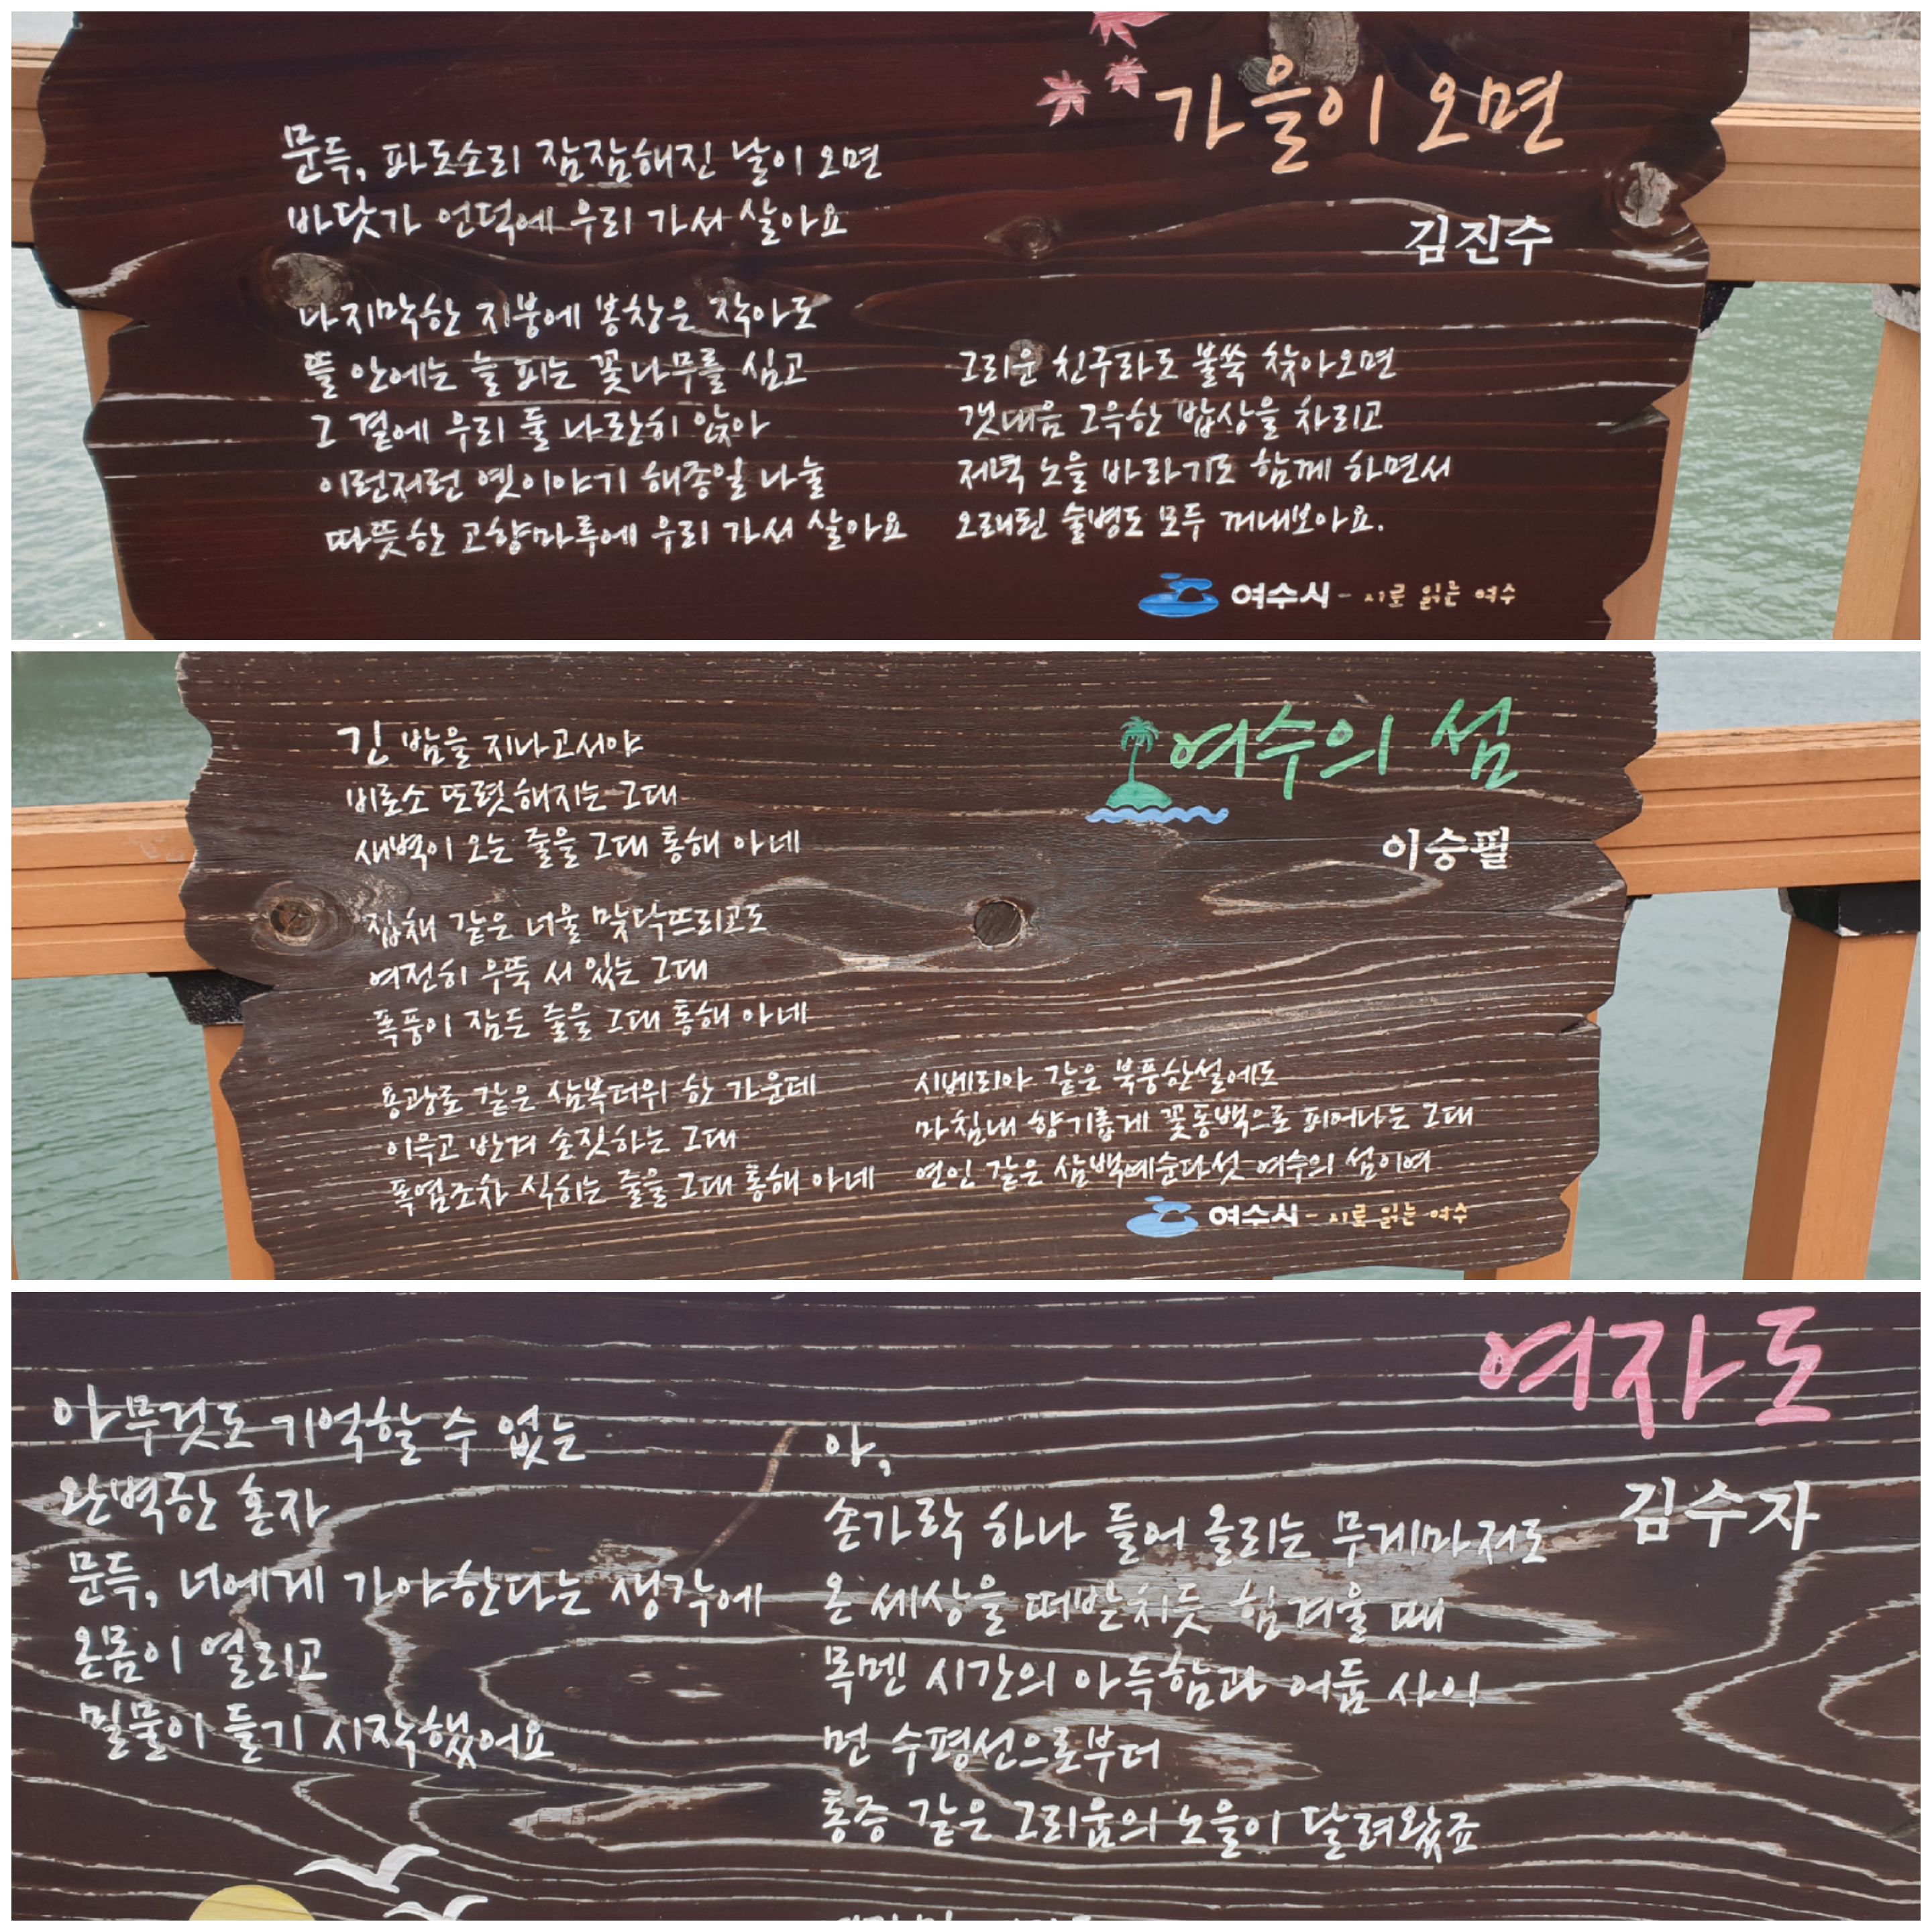 가을이 오면
김진수
문득, 파도소리 잠잠해진 날이 오면
바닷가 언덕에 우리 가서 살아요
나지막한 지붕에 봉창은 작아도
뜰 안에는 늘 피는 꽃나무를 심고
그 곁에 우리 둘 나란히 앉아
이런저런 옛이야기 해종일 나눌
따뜻한 고향마루에 우리 가서 살아요
그리운 친구라도 불쑥 찾아오면
갯내음 그윽한 밥상을 차리고
저녁 노을 바라기도 함께 하면서
오래된 술병도 모두 꺼내보아요.
여수시 - 시로 읽는 여수
여수의 섬
이승필
긴 밤을 지나고서야
비로소 또렷해지는 그대
새벽이 오는 줄을 그대 통해 아네
집채 같은 너울 맞닥뜨리고도
여전히 우뚝 서 있는 그대
폭풍이 잠든 줄을 그대 통해 아네
용광로 같은 삼복더위 한 가운데
이윽고 반겨 손짓하는 그대
폭염조차 식히는 줄을 그대 통해 아네
시베리아 같은 북풍한설에도
마침내 향기롭게 꽃동백으로 피어나는 그대
연인 같은 삼백예순다섯 여수의 섬이여
여수시 - 시로 읽는 여수
여자도
김수자
아무것도 기억할 수 없는
완벽한 혼자
문득, 너에게 가야한다는 생각에
온몸이 열리고
밀물이 들기 시작했어요
아,
손가락 하나 들어 올리는 무게마저도
온 세상을 떠받치듯 힘겨울 때
목멘 시간의 아득함과 어둠 사이
먼 수평선으로부터
통증 같은 그리움의 노을이 달려왔죠